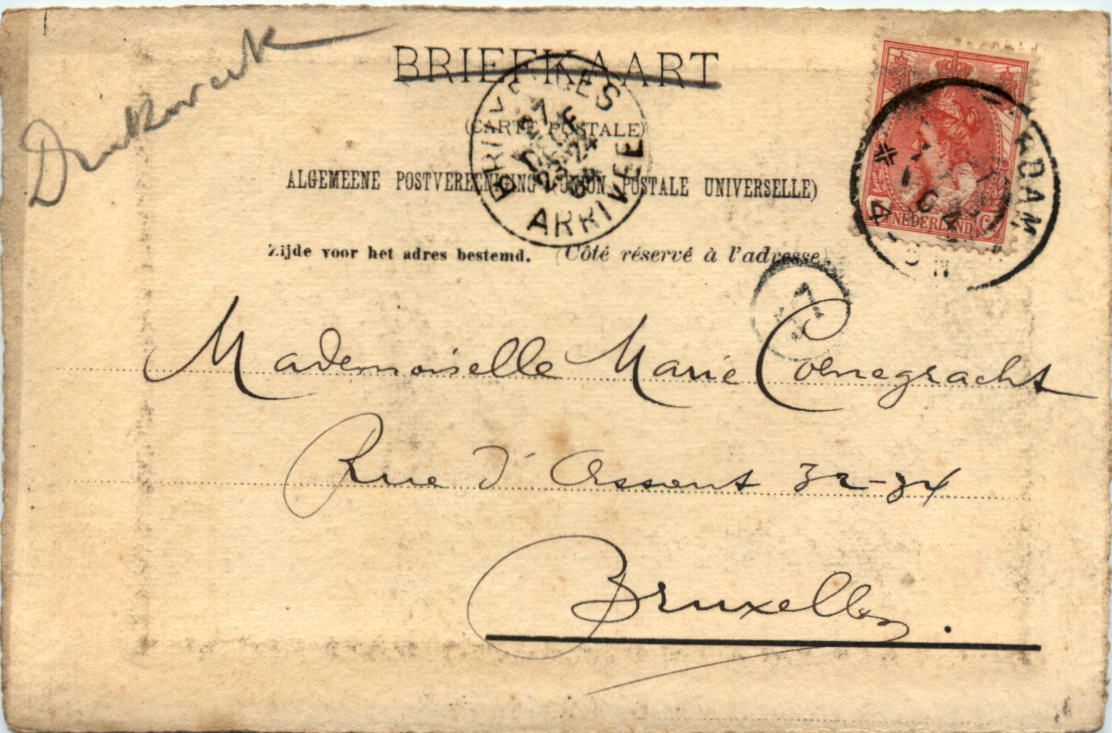 Drukwerk
BRIEFKAART
(CARTE POSTALE)
ALGEMEENE POSTVEREENIGING (UNION POSTALE UNIVERSELLE)
Zijde voor het adres bestemd. (Côté réservé à l'adresse)
NEDERLAND
BRUXELLES
ARRIVEE
7
Mademoiselle Marie Coenegracht
Rue d'Assent 32-34
Bruxelles.